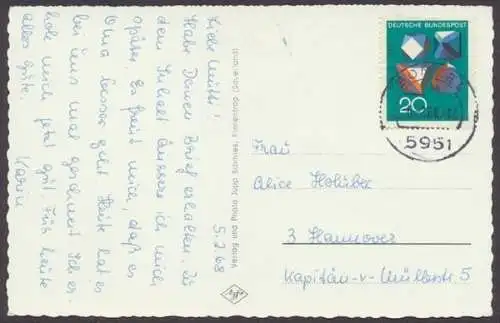 5.2.68
Liebe Mutti!
Habe Deinen Brief erhalten. Zu
dem Inhalt äussere ich mich
später. Es freut mich, daß es
Oma besser geht. Heute hat es
bei uns mal geschneit. Ich er-
hole mich jetzt gut. Für heute
alles gute.
Karin
Verlag und Photo Josef Schmies, Finnentrop (Sauerland)
Agfa
DEUTSCHE BUNDESPOST
20
5951
Frau
Alice Holuber
3 Hannover
Kapitän-v-Müllerstr. 5